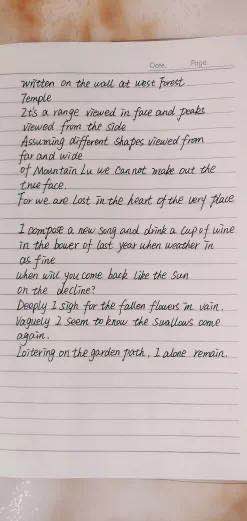 Date.    Page
written on the wall at west Forest
Temple
It's a range viewed in face and peaks
viewed from the side
Assuming different shapes viewed from
far and wide
of Mountain Lu we cannot make out the
true face.
For we are Lost in the heart of the very place
I compose a new song and drink a cup of wine
in the bower of last year when weather in
as fine
when will you come back like the sun
on the decline?
Deeply I sigh for the fallen flowers in vain.
Vaguely I seem to know the swallows come
again.
Loitering on the garden path, I alone remain.